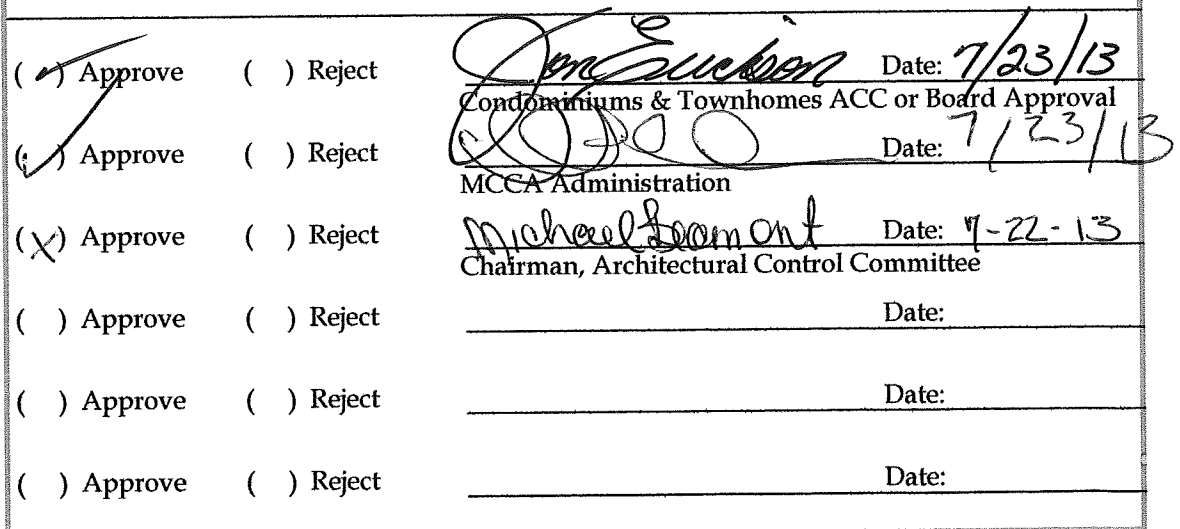 (✓) Approve ( ) Reject Jon Erickson Date: 7/23/13
Condominiums & Townhomes ACC or Board Approval
(✓) Approve ( ) Reject Date: 7/23/13
MCCA Administration
(X) Approve ( ) Reject Michael Date: 7-22-13
Chairman, Architectural Control Committee
( ) Approve ( ) Reject Date:
( ) Approve ( ) Reject Date:
( ) Approve ( ) Reject Date: